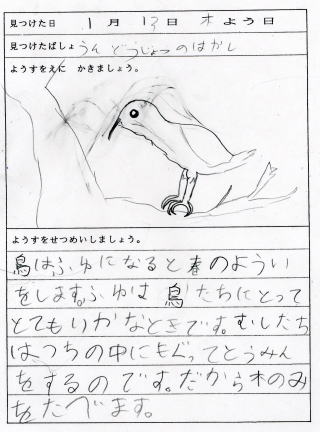 見つけた日 1月13日 木よう日
見つけたばしょ うんどうじょうのはかし
ようすをえに かきましょう。
ようすをせつめいしましょう。
鳥はふゆになると春のようい
をします。ふゆは 鳥たちにとって
とてもりかなときです。むしたち
はつちの中にもぐってとうみん
をするのです。だから木のみ
をたべます。